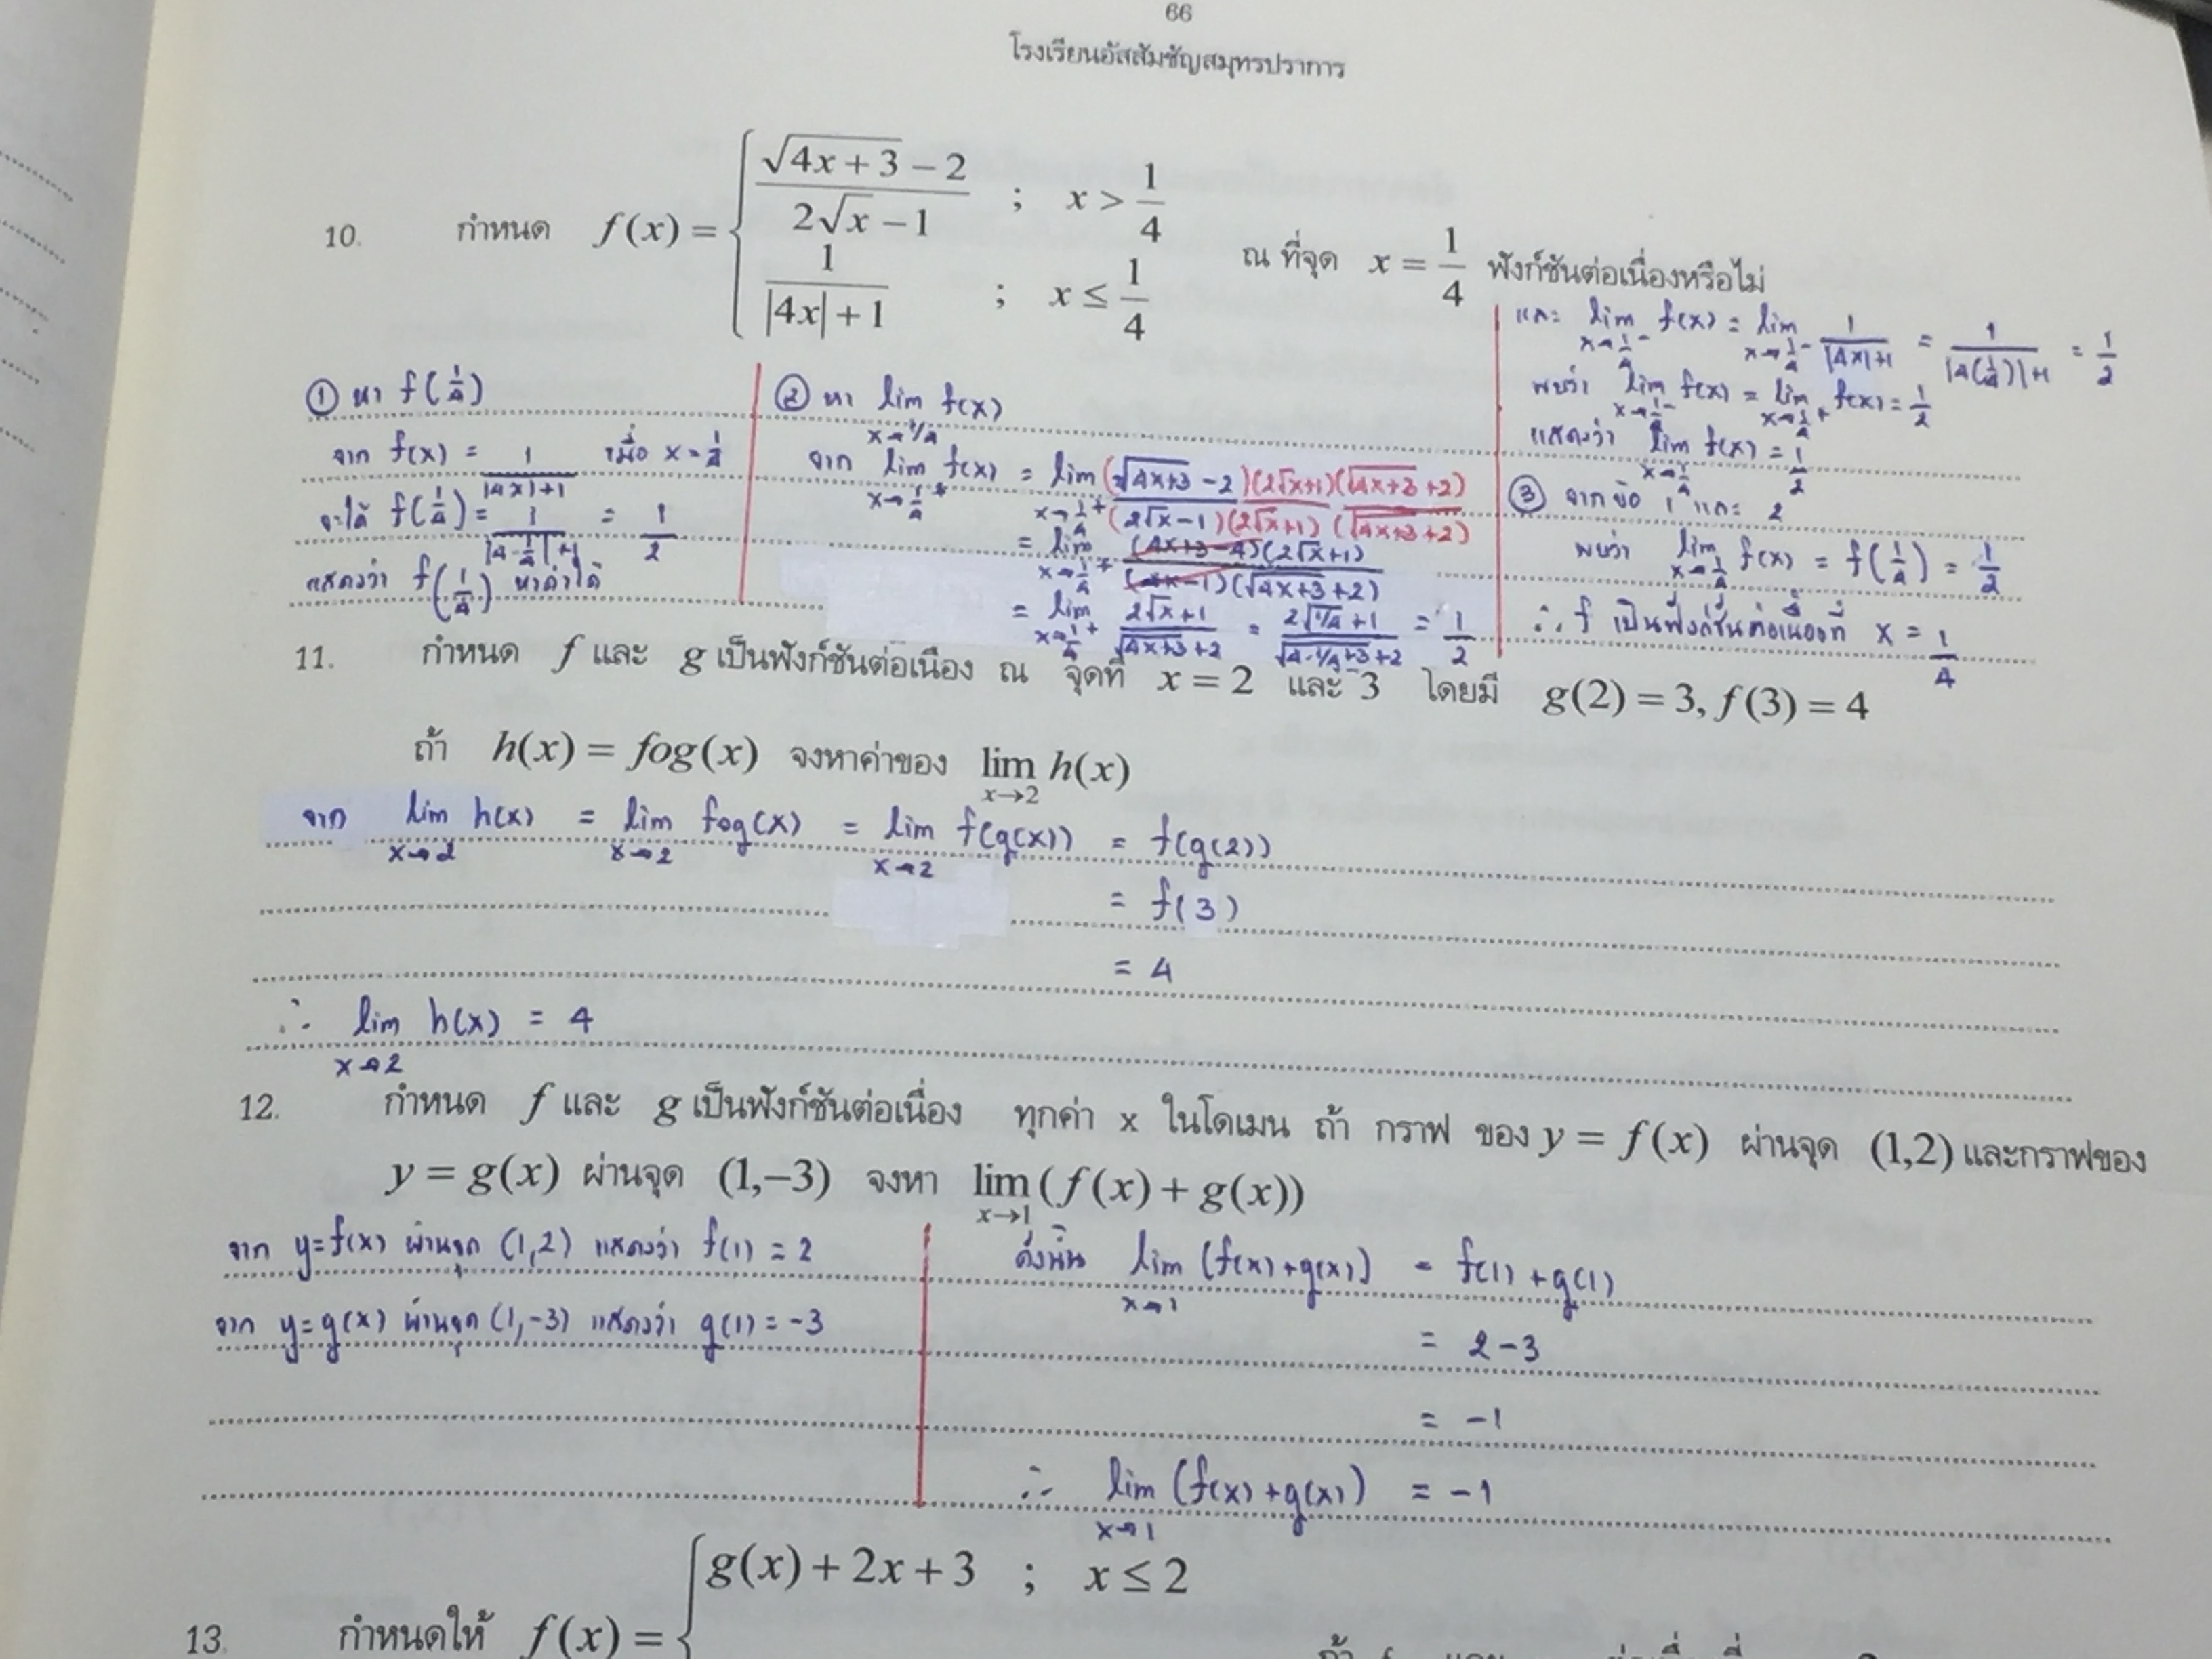 66
โรงเรียนอัสสัมชัญสมุทรปราการ
10. กำหนด f(x) = { (√(4x+3) − 2)/(2√x − 1) ; x > 1/4
1/(|4x|+1) ; x ≤ 1/4
ณ ที่จุด x = 1/4 ฟังก์ชันต่อเนื่องหรือไม่
① หา f(1/4)
จาก f(x) = 1/(|4x|+1) เมื่อ x = 1/4
จะได้ f(1/4) = 1/(|4·1/4|+1) = 1/2
แสดงว่า f(1/4) หาค่าได้
② หา lim x→1/4 f(x)
จาก lim x→1/4⁺ f(x) = lim x→1/4⁺ (√(4x+3) −2)(2√x+1)(√(4x+3)+2) / (2√x −1)(2√x+1)(√(4x+3)+2)
= lim x→1/4⁺ (4x+3−4)(2√x+1) / (4x−1)(√(4x+3)+2)
= lim x→1/4⁺ (2√x+1)/(√(4x+3)+2) = (2√(1/4)+1)/(√(4·1/4+3)+2) = 1/2
และ lim x→1/4⁻ f(x) = lim x→1/4⁻ 1/(|4x|+1) = 1/(|4(1/4)|+1) = 1/2
พบว่า lim x→1/4⁻ f(x) = lim x→1/4⁺ f(x) = 1/2
แสดงว่า lim x→1/4 f(x) = 1/2
③ จากข้อ 1 และ 2
พบว่า lim x→1/4 f(x) = f(1/4) = 1/2
∴ f เป็นฟังก์ชันต่อเนื่องที่ x = 1/4
11. กำหนด f และ g เป็นฟังก์ชันต่อเนื่อง ณ จุดที่ x = 2 และ 3 โดยมี g(2) = 3, f(3) = 4
ถ้า h(x) = fog(x) จงหาค่าของ lim x→2 h(x)
จาก lim x→2 h(x) = lim x→2 fog(x) = lim x→2 f(g(x)) = f(g(2))
= f(3)
= 4
∴ lim x→2 h(x) = 4
12. กำหนด f และ g เป็นฟังก์ชันต่อเนื่อง ทุกค่า x ในโดเมน ถ้า กราฟ ของ y = f(x) ผ่านจุด (1,2) และกราฟของ
y = g(x) ผ่านจุด (1,−3) จงหา lim x→1 (f(x) + g(x))
จาก y=f(x) ผ่านจุด (1,2) แสดงว่า f(1) = 2
จาก y=g(x) ผ่านจุด (1,−3) แสดงว่า g(1) = −3
ดังนั้น lim x→1 (f(x)+g(x)) = f(1)+g(1)
= 2−3
= −1
∴ lim x→1 (f(x)+g(x)) = −1
13. กำหนดให้ f(x) = { g(x) + 2x + 3 ; x ≤ 2